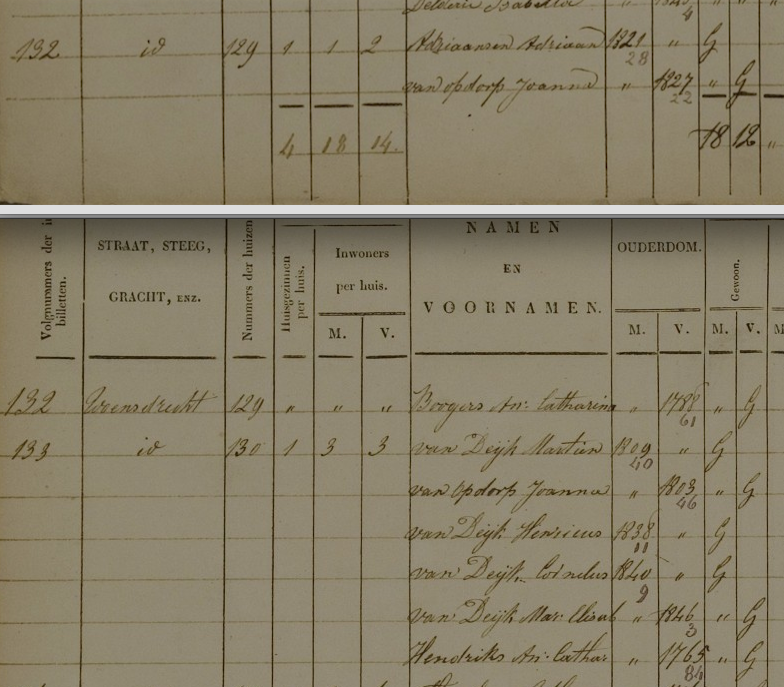 132 id 129 1 1 2 Adriaansen Adriaan 1821 " G
28
van Opdorp Joanna " 1827 " G
22
4 18 14. 18 12 "
Volgnummers der
billetten.
STRAAT, STEEG,
GRACHT, ENZ.
Nummers der huizen
Huisgezinnen
per huis.
Inwoners
per huis.
M. V.
NAMEN
EN
VOORNAMEN.
OUDERDOM.
M. V.
Gewoon.
M. V. M
132 Woensdrecht 129 " " " Boogers An: Catharina " 1788 " G
61
133 id 130 1 3 3 van Deijk Martin 1809 " G
40
van Opdorp Joanna " 1803 " G
46
van Deijk Henricus 1838 " G
11
van Deijk Cornelus 1840 " G
9
van Deijk Mar: Elisab " 1846 " G
3
Hendriks An: Cathar " 1765 " G
84